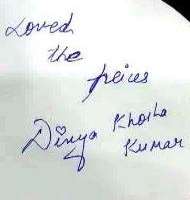 Loved
the
peices
Divya Khosla
Kumar